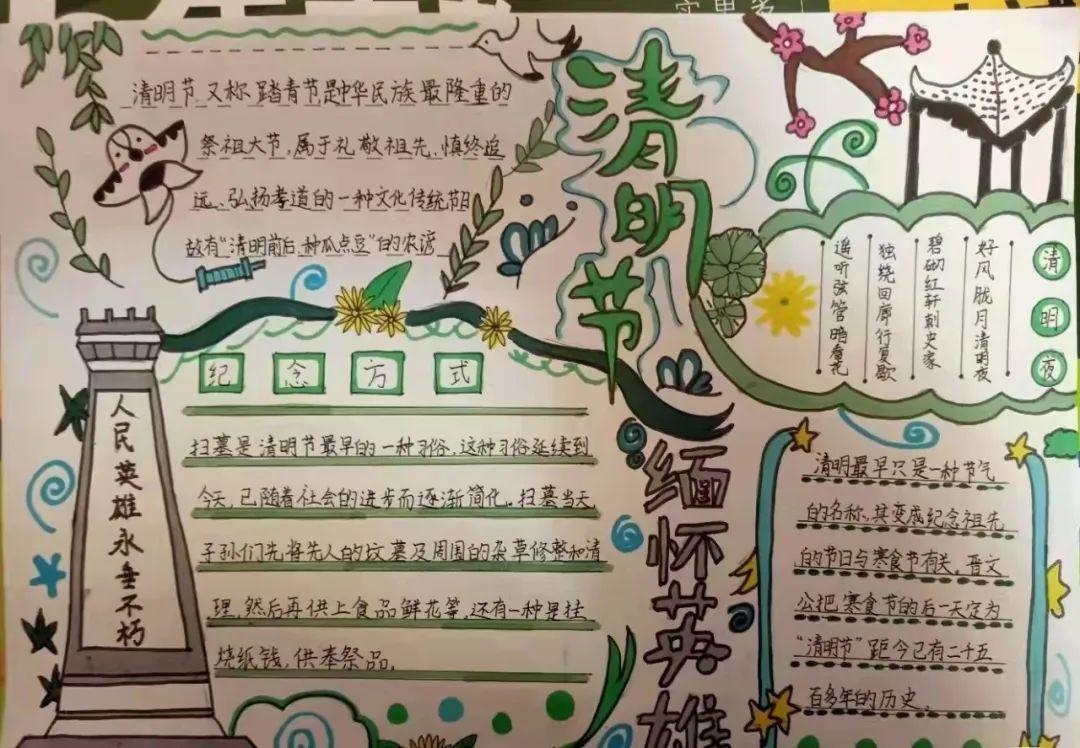 清明节,又称踏青节,是中华民族最隆重的
祭祖大节,属于礼敬祖先、慎终追
远、弘扬孝道的一种文化传统节日
故有“清明前后,种瓜点豆”的农谚
清明节
清明夜
好风胧月清明夜
碧砌红轩刺史家
独绕回廊行复歇
遥听弦管暗看花
纪念方式
扫墓是清明节最早的一种习俗,这种习俗延续到
今天,已随着社会的进步而逐渐简化。扫墓当天
子孙们先将先人的坟墓及周围的杂草修整和清
理,然后再供上食品鲜花等,还有一种是挂
烧纸钱,供奉祭品。
人民英雄永垂不朽
缅怀英雄
清明最早只是一种节气
的名称,其变成纪念祖先
的节日与寒食节有关。晋文
公把寒食节的后一天定为
“清明节”距今已有二十五
百多年的历史。